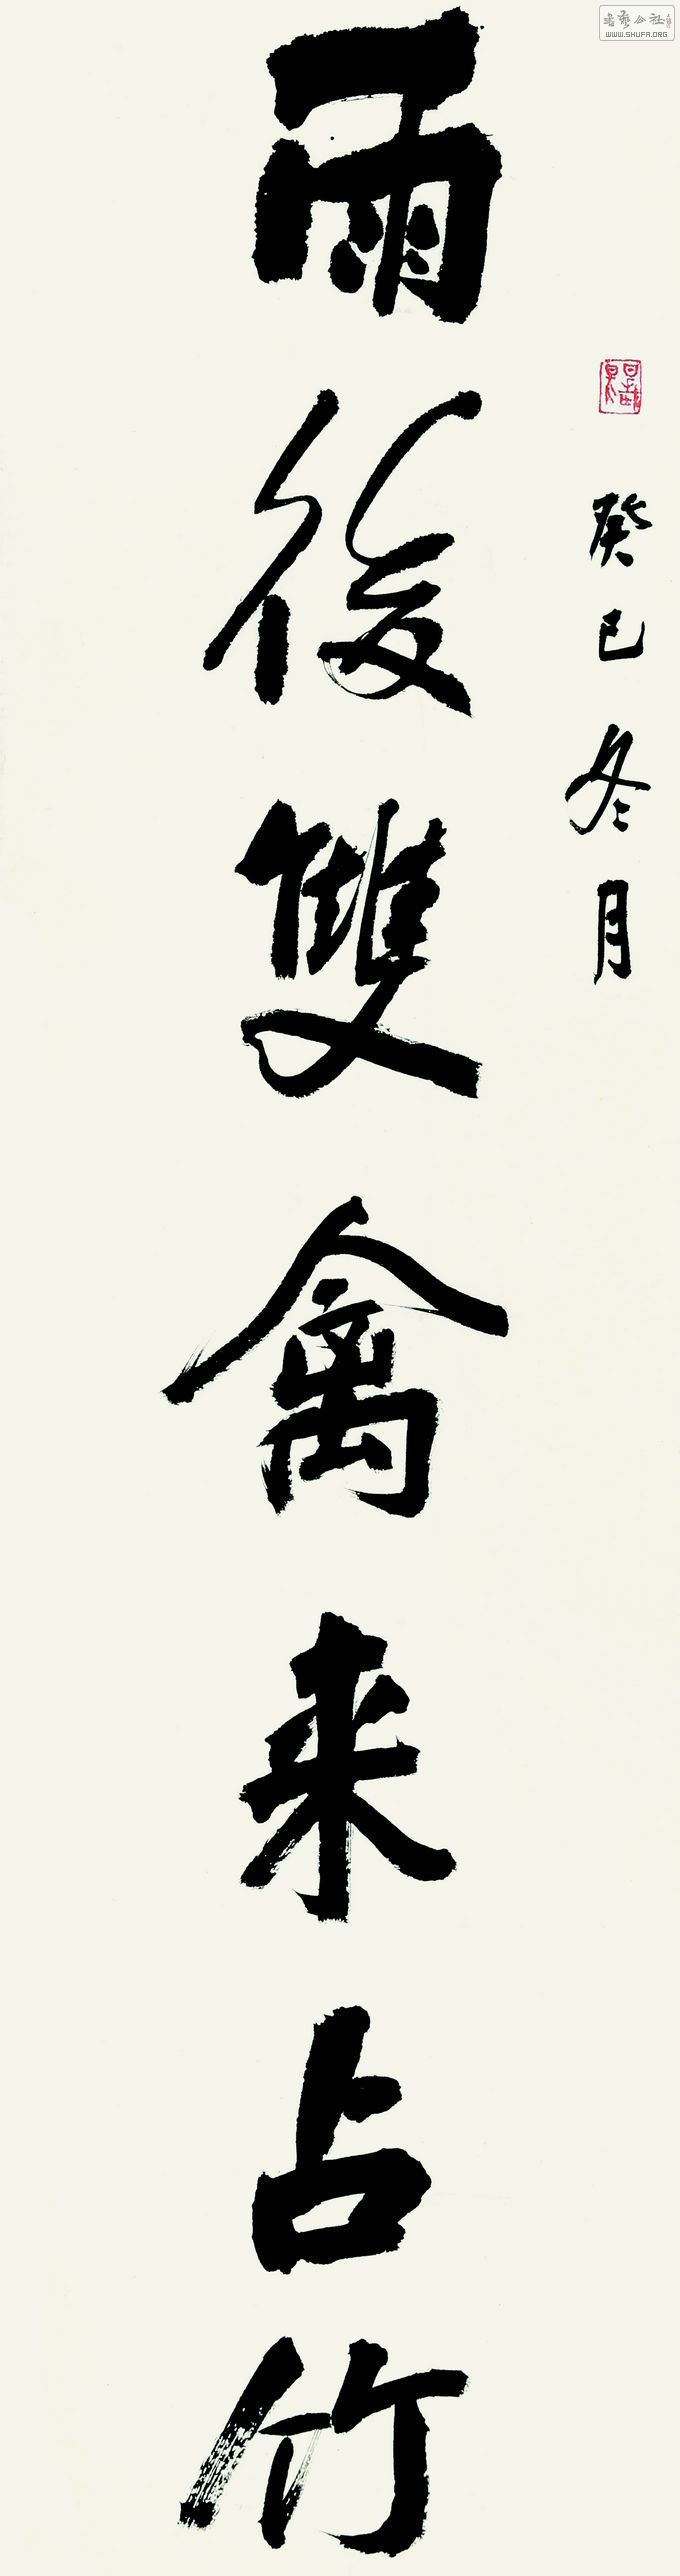 癸巳冬月
雨後雙禽来占竹
書藝公社
WWW.SHUFA.ORG